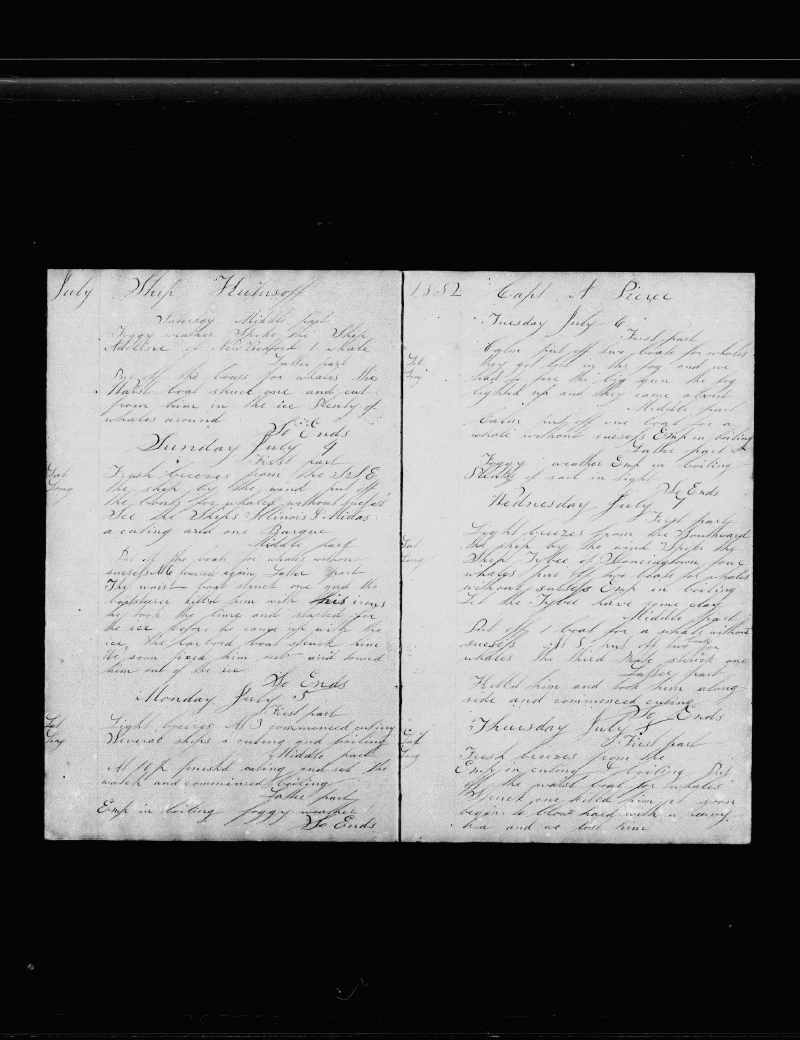 July Ship Kutusoff
Saturday Middle part
Foggy weather Spoke the Ship
Adeline of New Bedford 1 whale
Latter part
Put off the boats for whales the
Waist boat struck one and cut
from him in the ice Plenty of
whales around
So Ends
Sunday July 4
First part
Lat
Long
Fresh breezes from the SSE
the ship by the wind put off
the boats for whales without sucsess
See the Ships Illinois & Midas
a cuting and one Barque
Middle part
Put off the boats for whales without
sucsess At 6 lowered again Latter part
The waist boat struck one and the
boatsteerer killed him with his irons
he took the line and started for
the ice before he came up with the
ice the larbord boat struck him
We soon fixed him out and towed
him out of the ice
So Ends
Monday July 5
First part
Lat
Long
Light breezes At 3 commenced cuting
Several ships a cuting and boiling
Middle part
At 10 finishd cuting and set the
watch and commenced boiling
Latter part
Emp in boiling foggy weather
So Ends
1852 Capt A Pierce
Tuesday July 6
First part
Lat
Long
Calm put off two boats for whales
they got lost in the fog and we
had to fire the big gun the fog
lighted up and they came aboard
Middle part
Calm put off one boat for a
whale without sucsess Emp in boiling
Latter part
Foggy weather Emp in boiling
Plenty of sail in sight
So Ends
Wednesday July 7
First part
Lat
Long
Light breezes from the Southward
the ship by the wind Spoke the
Ship Tybee of Stonington four
whales put off two boats for whales
without sucsess Emp in boiling
Let the Tybee have some clay
Middle part
Put off 1 boat for a whale without
sucsess At 8 put off two boats for
whales the third Mate struck one
Latter part
Killed him and took him along
side and commenced cuting
So Ends
Thursday July 8
First part
Lat
Long
Fresh breezes from the
Emp in cuting & boiling Put
off the waist boat for whales
Struck one killed him it soon
began to blow hard with a heavy
sea and we lost him